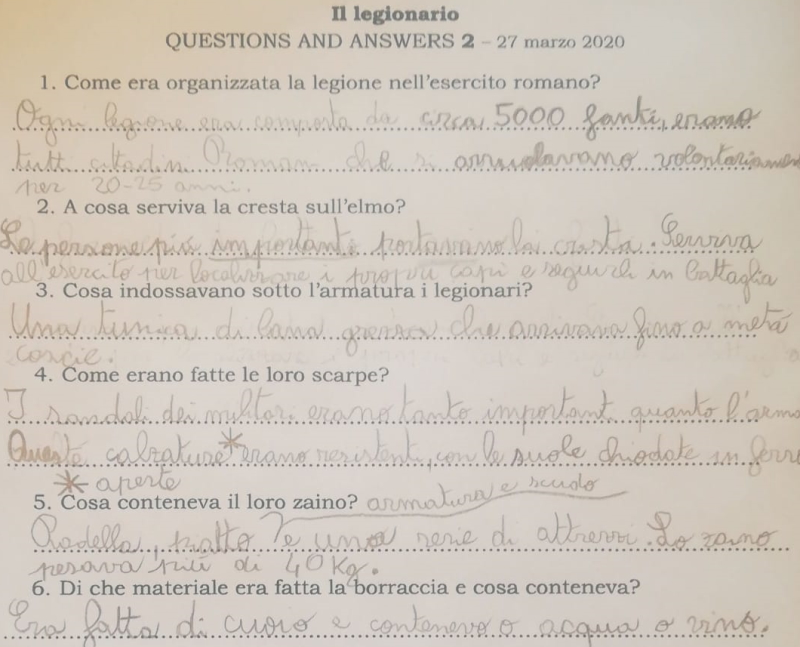 Il legionario
QUESTIONS AND ANSWERS 2 – 27 marzo 2020
1. Come era organizzata la legione nell'esercito romano?
Ogni legione era composta da circa 5000 fanti, erano
tutti cittadini Romani che si arruolavano volontariamen
per 20-25 anni.
2. A cosa serviva la cresta sull'elmo?
Le persone più importanti portavano la cresta. Serviva
all'esercito per localizzare i propri capi e seguirli in battaglia
3. Cosa indossavano sotto l'armatura i legionari?
Una tunica di lana grezza che arrivava fino a metà
coscie.
4. Come erano fatte le loro scarpe?
I sandali dei militari erano tanto importanti quanto l'arma
Queste calzature* erano resistenti, con le suole chiodate in ferro
* aperte
5. Cosa conteneva il loro zaino? armatura e scudo
Padella, piatto e una serie di attrezzi. Lo zaino
pesava più di 40 Kg.
6. Di che materiale era fatta la borraccia e cosa conteneva?
Era fatta di cuoio e conteneva o acqua o vino.